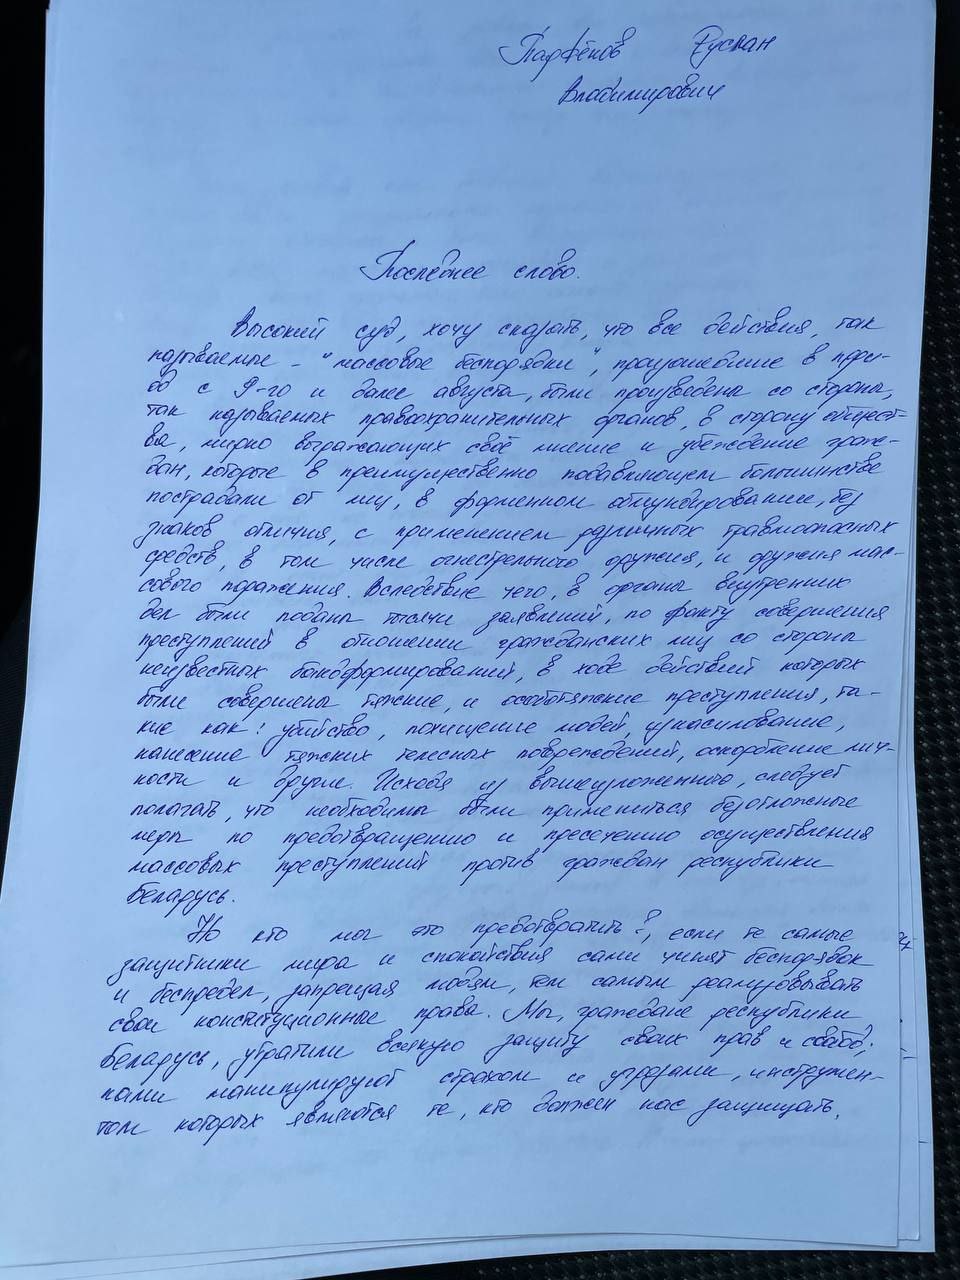 Парфёнов Руслан
Владимирович
Последнее слово.
Высокий суд, хочу сказать, что все действия, так
называемые - "массовые беспорядки", произошедшие в пери-
од с 9-го и далее августа, были произведены со стороны,
так называемых правоохранительных органов, в сторону общест
ва, мирно выражающих своё мнение и убеждение граж-
дан, которые в преимущественно подавляющем большинстве
пострадали от лиц, в форменном обмундировании, без
знаков отличия, с применением различных травмоопасных
средств, в том числе огнестрельного оружия, и оружия мас-
сового поражения. Вследствие чего, в органы внутренних
дел были поданы тысячи заявлений, по факту совершения
преступлений в отношении гражданских лиц со стороны
неизвестных бандформирований, в ходе действий которых
были совершены тяжкие, и особотяжкие преступления, та-
кие как: убийство, похищение людей, изнасилование,
нанесение тяжких телесных повреждений, оскорбление лич-
ности и другие. Исходя из вышеизложенного, следует
полагать, что необходимы были примениться безотложные
меры по предотвращению и пресечению осуществления
массовых преступлений против граждан республики
Беларусь.
Но кто мог это предотвратить?, если те самые
защитники мира и спокойствия сами чинят беспорядок
и беспредел, запрещая людям, тем самым реализовывать
свои конституционные права. Мы, граждане республики
Беларусь, утратили всякую защиту своих прав и свобод;
нами манипулируют страхом и угрозами, инструмен-
том которых являются те, кто должен нас защищать,